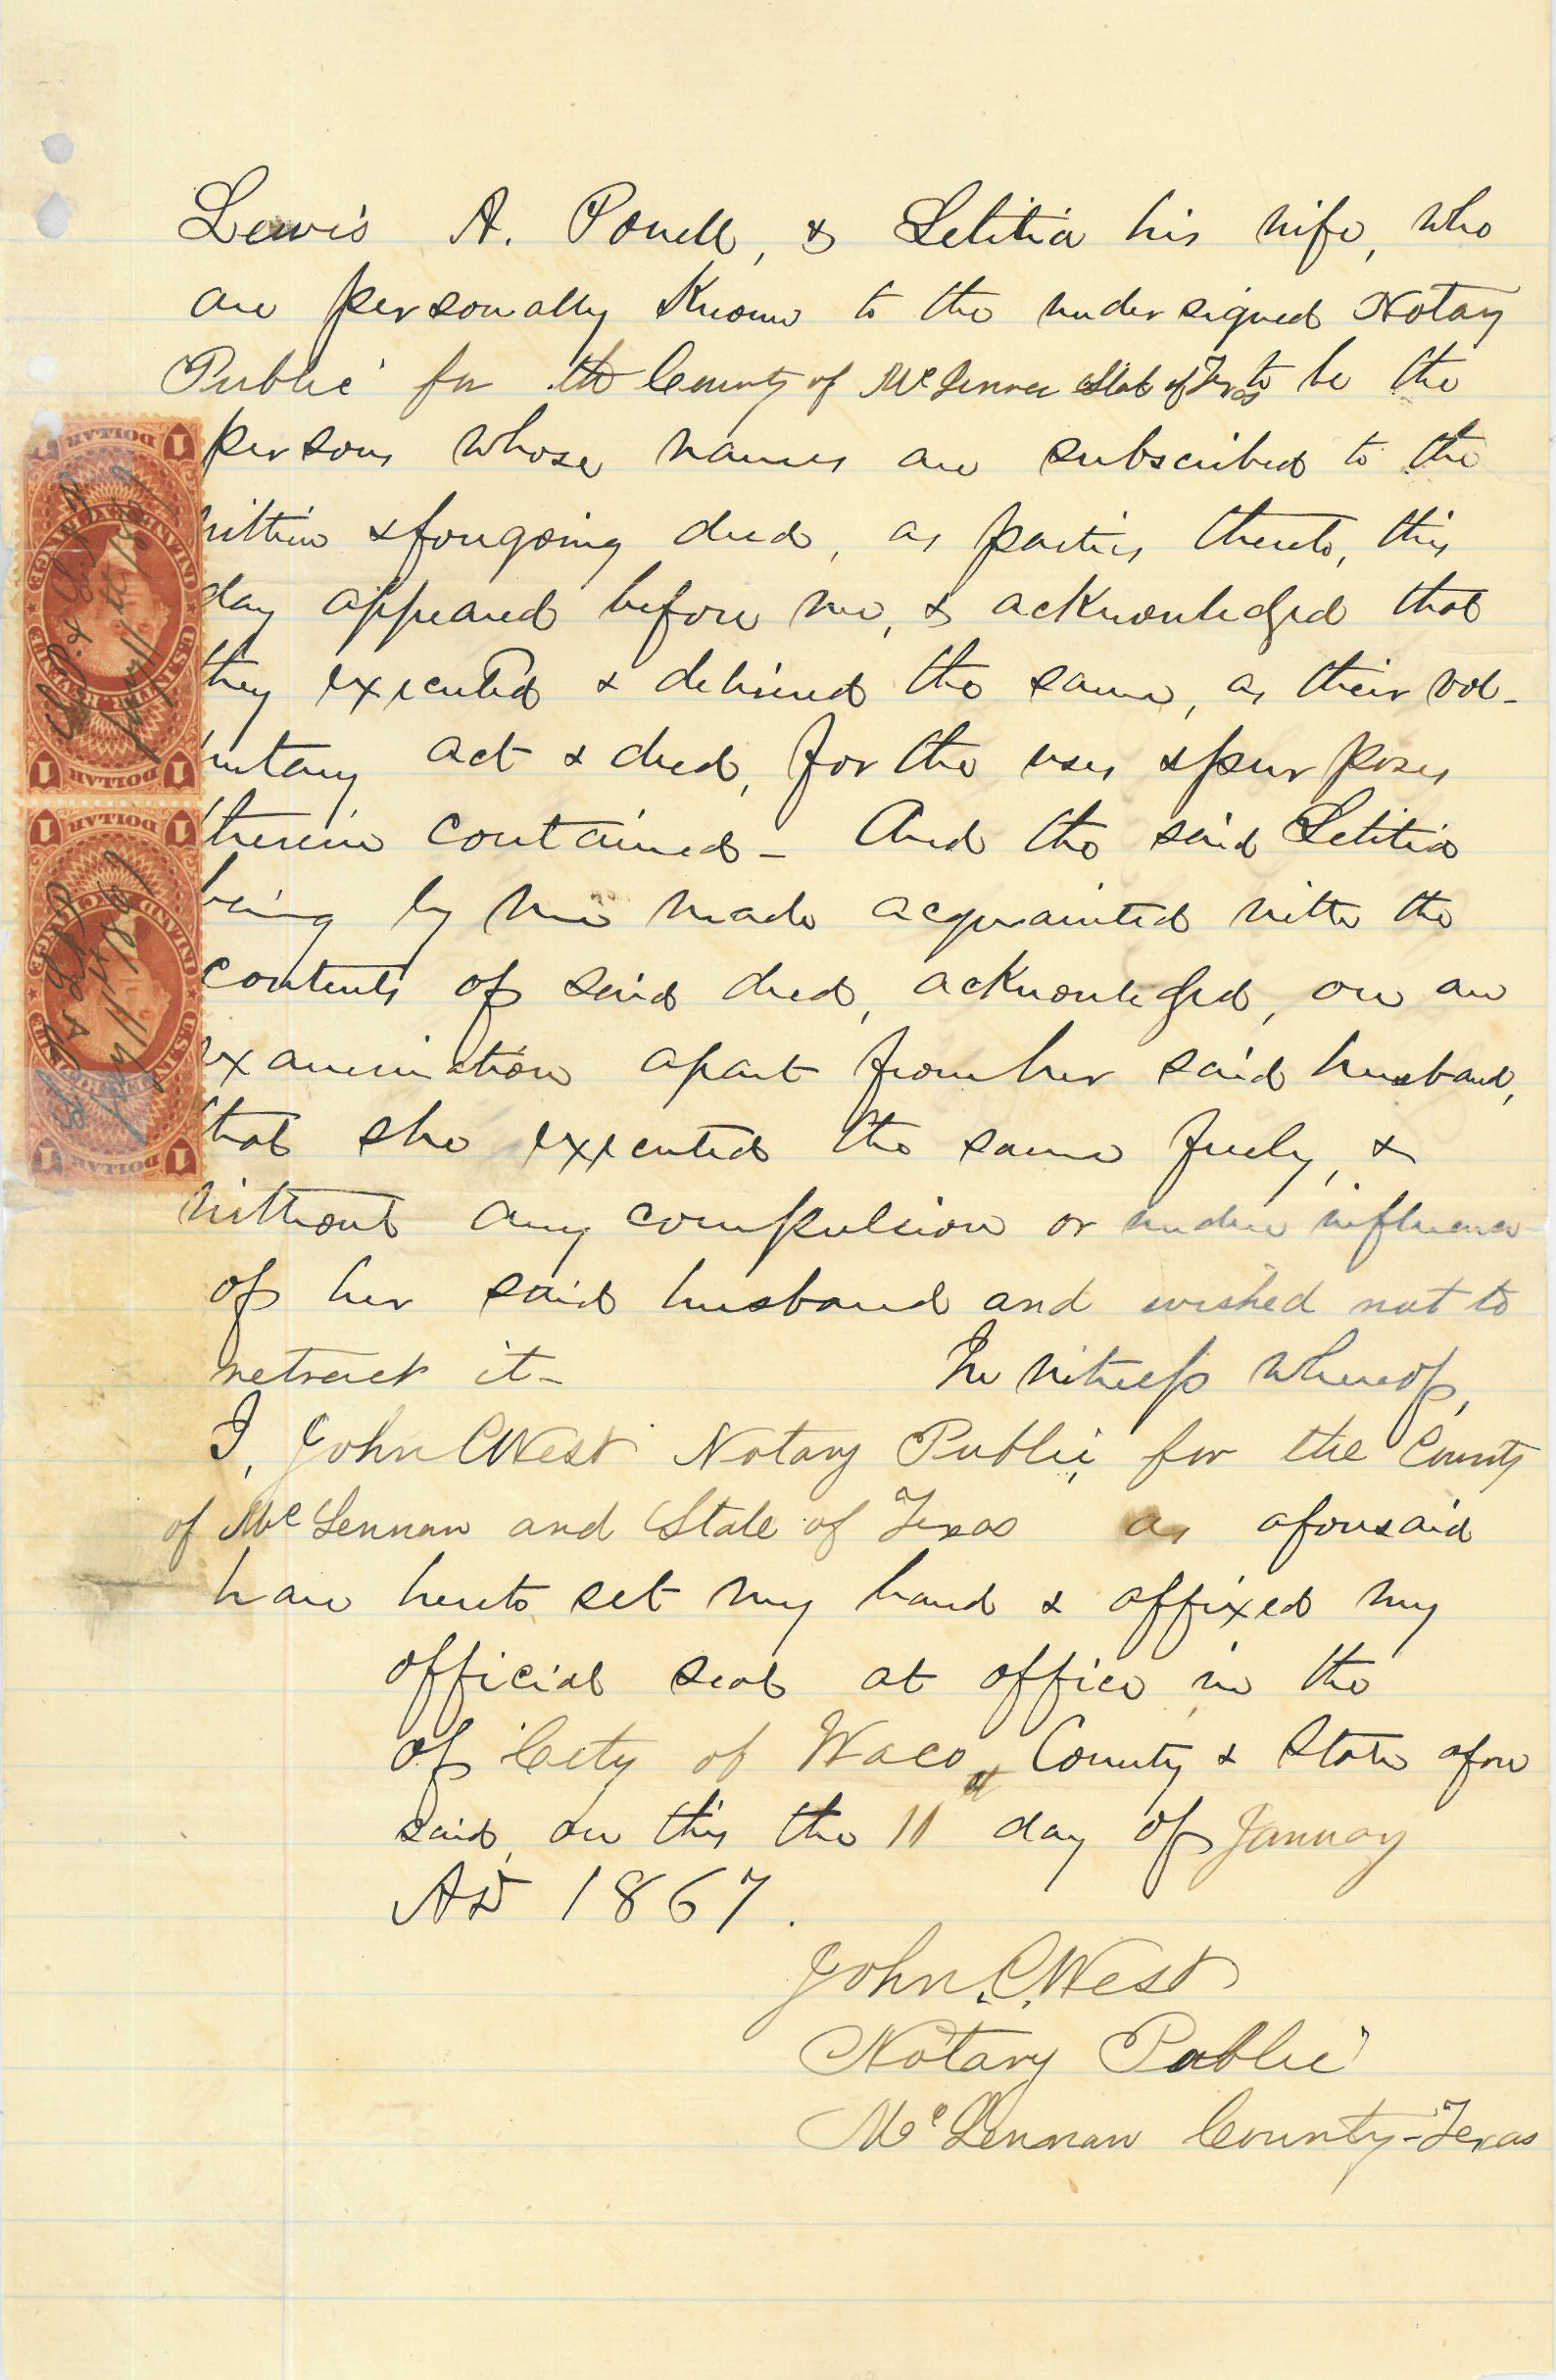 Lewis A. Powell, & Letitia his wife, who
are personally known to the undersigned Notary
Public for the County of McLennan State of Texas to be the
persons whose names are subscribed to the
within & foregoing deed, as parties thereto, this
day appeared before me, & acknowledged that
they executed & delivered the same, as their vol-
untary act & deed, for the uses & purposes
therein contained – And the said Letitia
being by me made acquainted with the
contents of said deed, acknowledged, on an
examination apart from her said husband,
that she executed the same freely, &
without any compulsion or undue influence
of her said husband and wished not to
retract it –     In witness whereof,
I, John C West Notary Public, for the County
of McLennan and State of Texas as aforesaid
have hereto set my hand & affixed my
official seal at office, in the
of City of Waco, County & State afore
said, on this the 11th day of January
AD 1867.
John. C. West
Notary Public
McLennan County - Texas
1 DOLLAR 1
INLAND EXCHANGE
U.S. INTER. REVENUE
Jany 11th 1867
1 DOLLAR 1
1 DOLLAR 1
INLAND EXCHANGE
U.S. INTER. REVENUE
Jany 11th 1867
1 DOLLAR 1